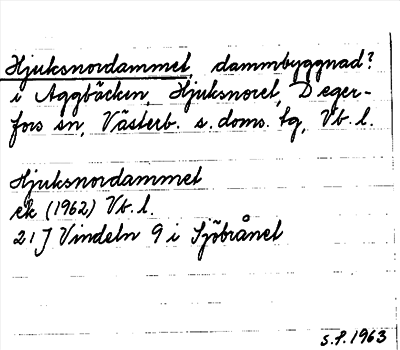 Hjuksnordammet, dammbyggnad?
i Aggbäcken, Hjuksnoret, Deger-
fors sn, Västerb. s. doms. tg, Vb. l.
Hjuksnordammet
ek (1962) Vb. l.
21J Vindeln 9 i Sjöbrånet
S.P. 1963